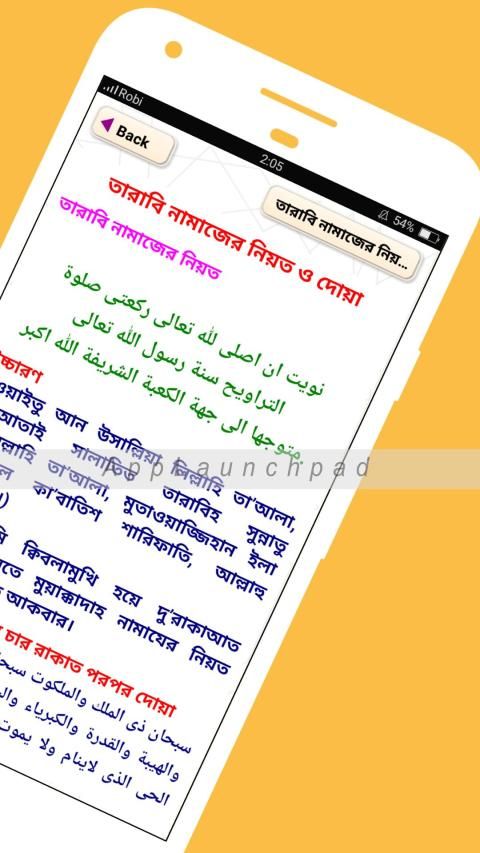 Robi
2:05
54%
Back
তারাবি নামাজের নিয়...
তারাবি নামাজের নিয়ত ও দোয়া
তারাবি নামাজের নিয়ত
نويت ان اصلى لله تعالى ركعتى صلوة
التراويح سنة رسول الله تعالى
متوجها الى جهة الكعبة الشريفة الله اكبر
আন উসাল্লিয়া লিল্লাহি তা'আলা,
সালাতিত তারাবিহ সুন্নাতু
তা'আলা, মুতাওয়াজ্জিহান ইলা
কা'বাতিশ শারিফাতি, আল্লাহু
ক্বিবলামুখি হয়ে দু'রাকাআত
মুয়াক্কাদাহ নামাযের নিয়ত
আকবার।
চার রাকাত পরপর দোয়া
سبحان ذى الملك والملكوت
والهيبة والقدرة والكبرياء
الحى الذى لاينام ولا يموت
AppLaunchpad